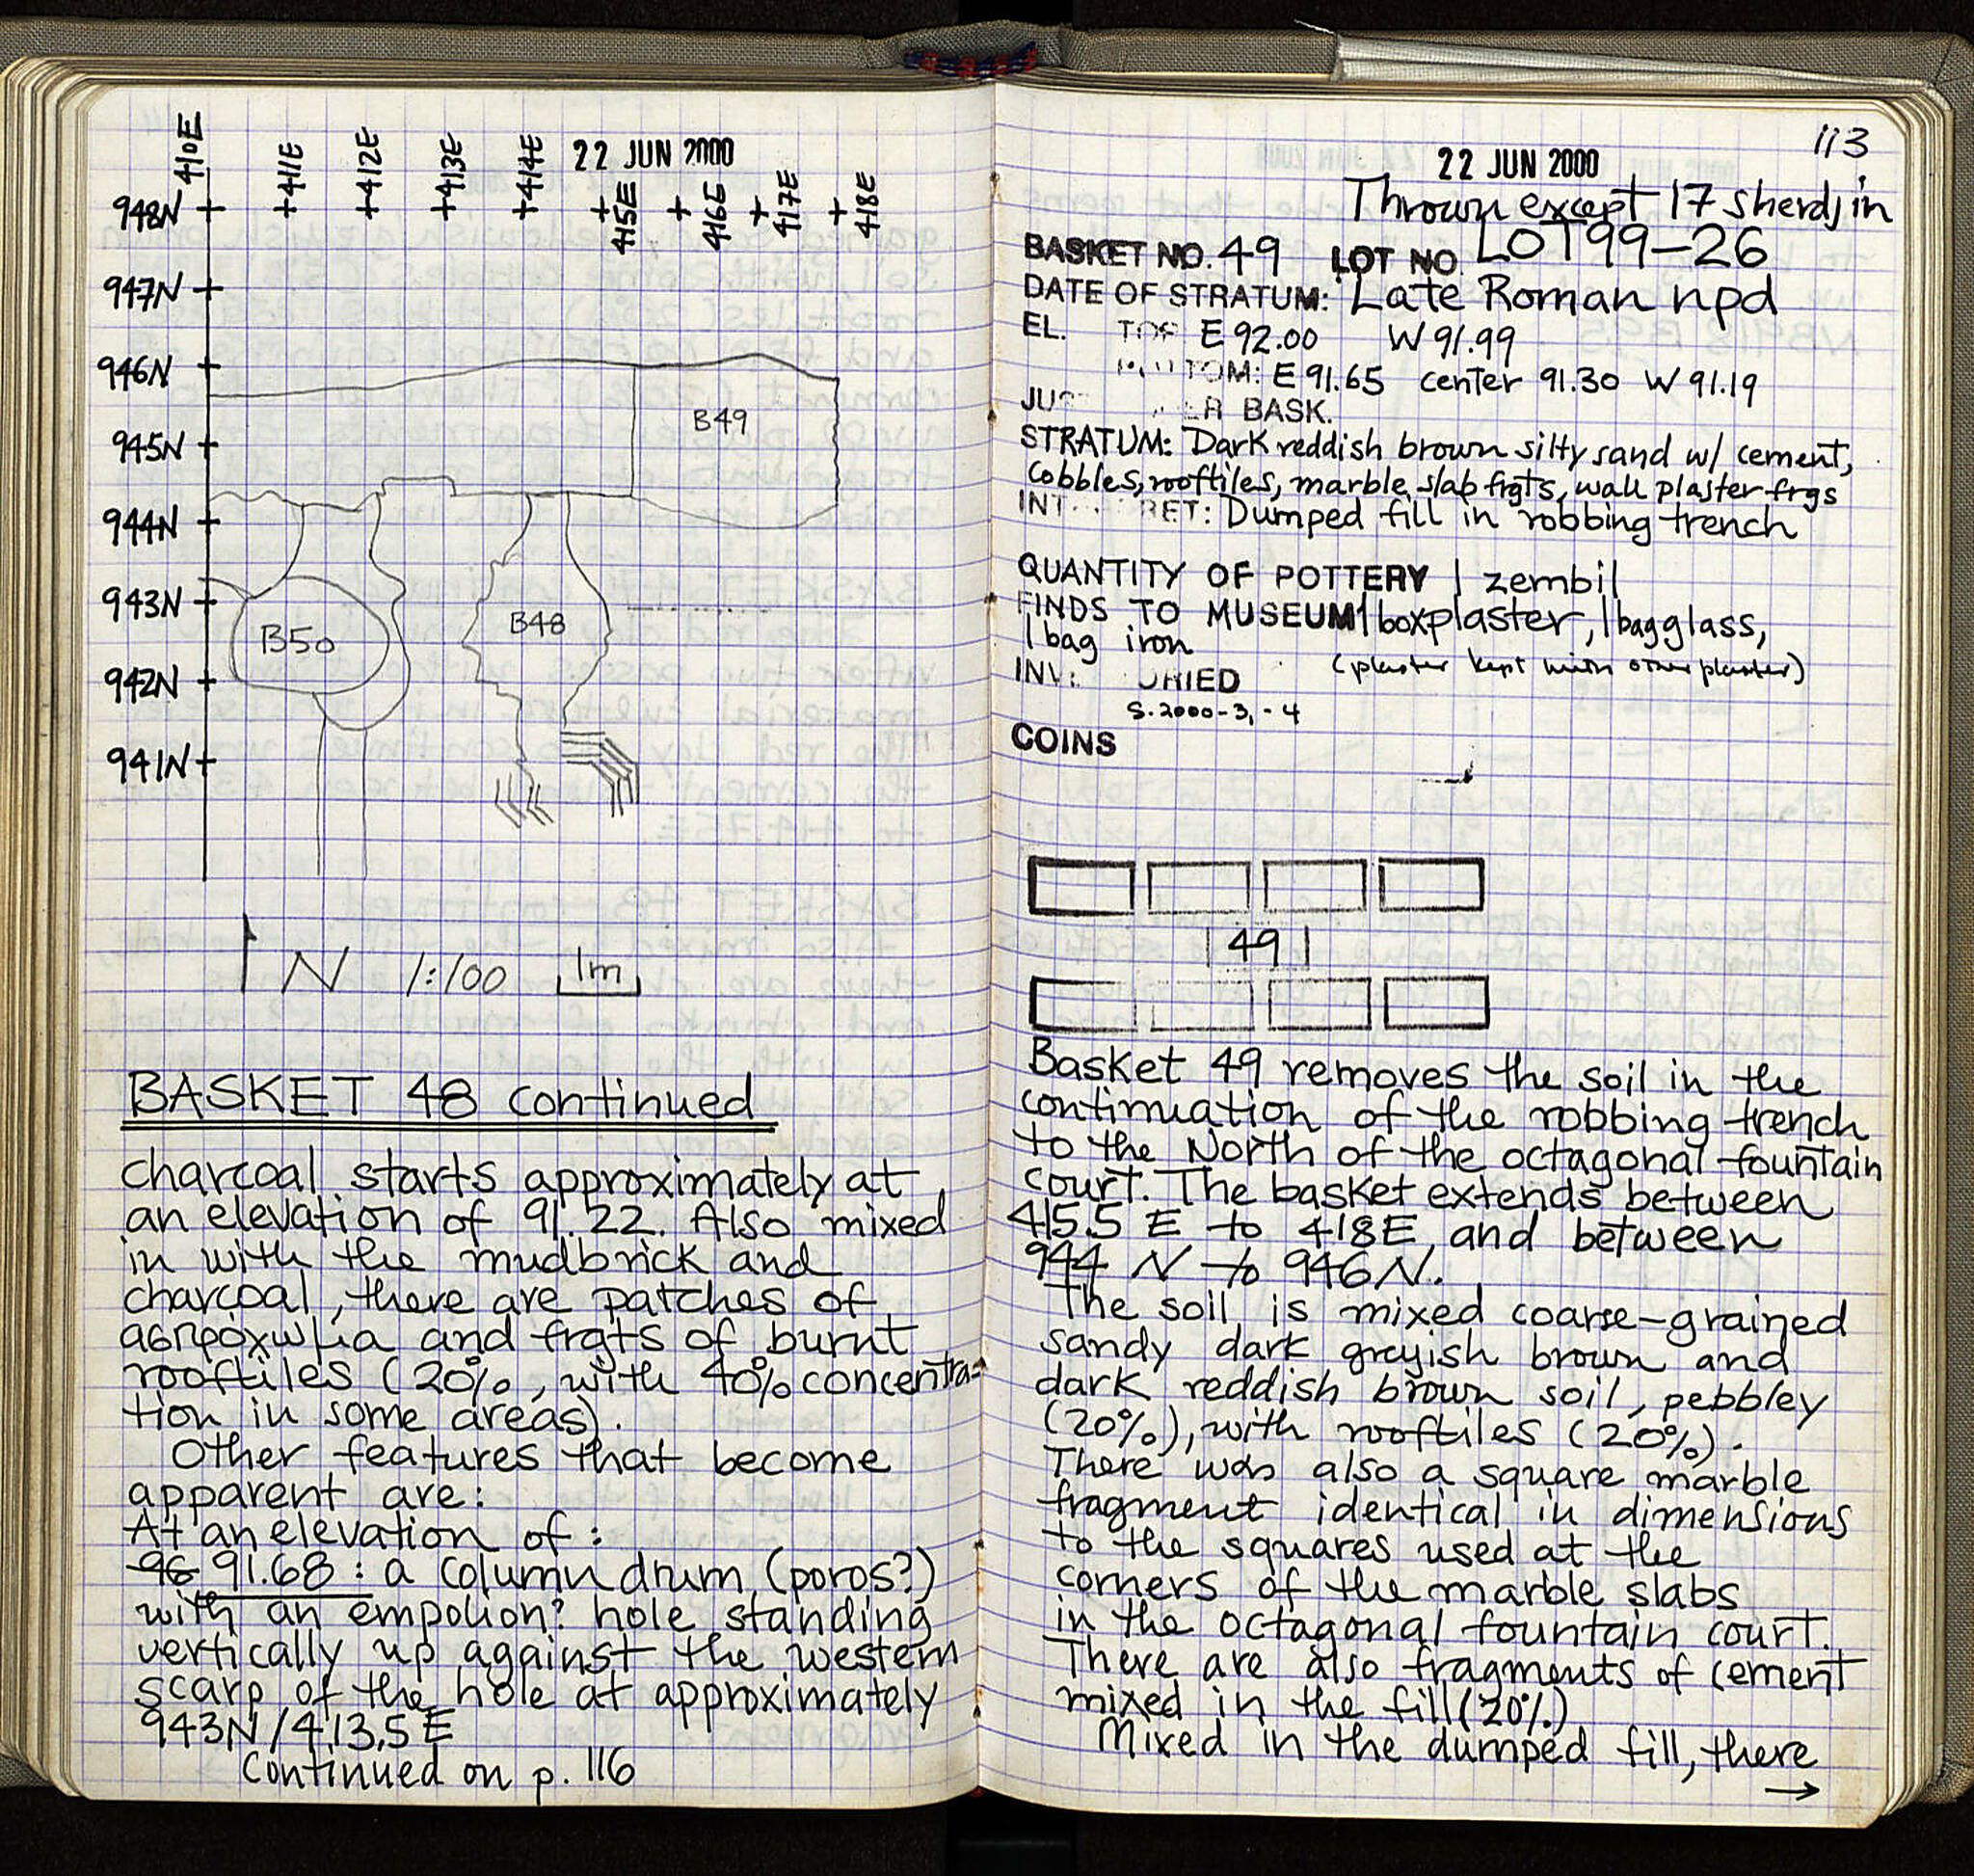 22 JUN 2000
410E
+411E
+412E
+413E
+414E
415E
416E
417E
418E
948N
947N
946N
945N
944N
943N
942N
941N
B49
B48
B50
N 1:100 1m
BASKET 48 continued
charcoal starts approximately at
an elevation of 91.22. Also mixed
in with the mudbrick and
charcoal, there are patches of
ασπρόχωμα and frgts of burnt
rooftiles (20%, with 40% concentra-
tion in some areas).
Other features that become
apparent are:
At an elevation of:
96 91.68: a column drum (poros?)
with an empolion? hole standing
vertically up against the western
scarp of the hole at approximately
943N/413.5E
Continued on p. 116
113
22 JUN 2000
Thrown except 17 sherds in
BASKET NO. 49 LOT NO. LOT 99-26
DATE OF STRATUM: Late Roman npd
EL. TOP E 92.00 W 91.99
BOTTOM: E 91.65 center 91.30 W 91.19
BASK.
STRATUM: Dark reddish brown silty sand w/ cement,
cobbles, rooftiles, marble slab frgts, wall plaster frgs
INTERPRET: Dumped fill in robbing trench
QUANTITY OF POTTERY 1 zembil
FINDS TO MUSEUM 1 box plaster, 1 bag glass,
1 bag iron
(plaster kept with other plaster)
S.2000-3, -4
COINS
49
Basket 49 removes the soil in the
continuation of the robbing trench
to the North of the octagonal fountain
court. The basket extends between
415.5 E to 418E, and between
944 N to 946N.
The soil is mixed coarse-grained
sandy dark greyish brown and
dark reddish brown soil, pebbley
(20%), with rooftiles (20%).
There was also a square marble
fragment identical in dimensions
to the squares used at the
corners of the marble slabs
in the octagonal fountain court.
There are also fragments of cement
mixed in the fill (20%)
Mixed in the dumped fill, there
→